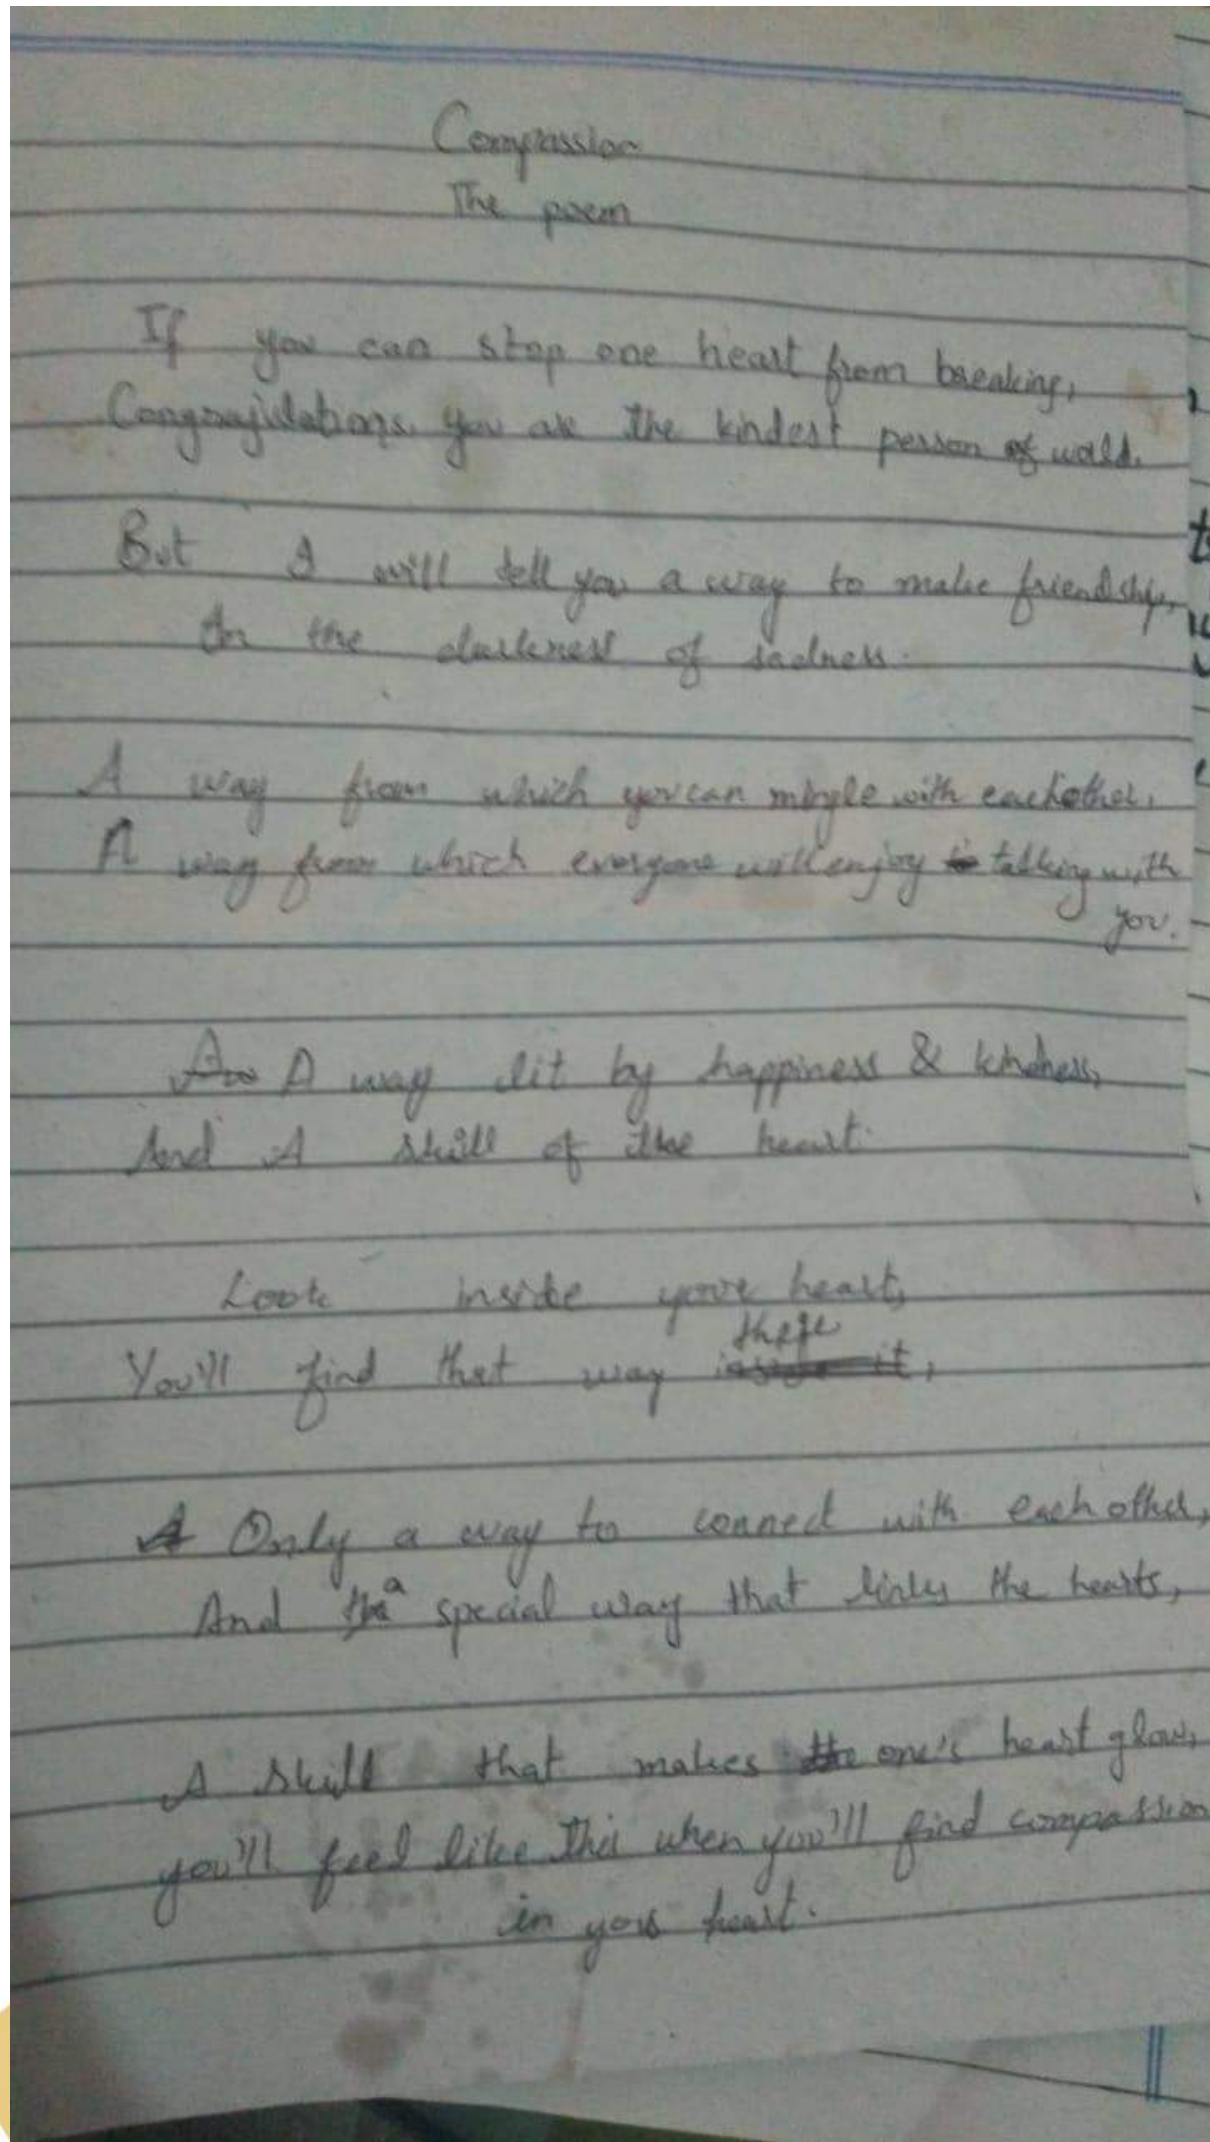 Compassion
The poem
If you can stop one heart from breaking,
Congragulations you are the kindest person of world.
But I will tell you a way to make friendship,
In the darkness of sadness.
A way from which you can mingle with each other,
A way from which everyone will enjoy to talking with
you.
A way lit by happiness & kindness,
And A skill of the heart.
Look inside your heart,
there
You'll find that way inside it,
A Only a way to connect with each other,
And the a special way that links the hearts,
A skill that makes the one's heart glow,
you'll feel like this when you'll find compassion
in your heart.